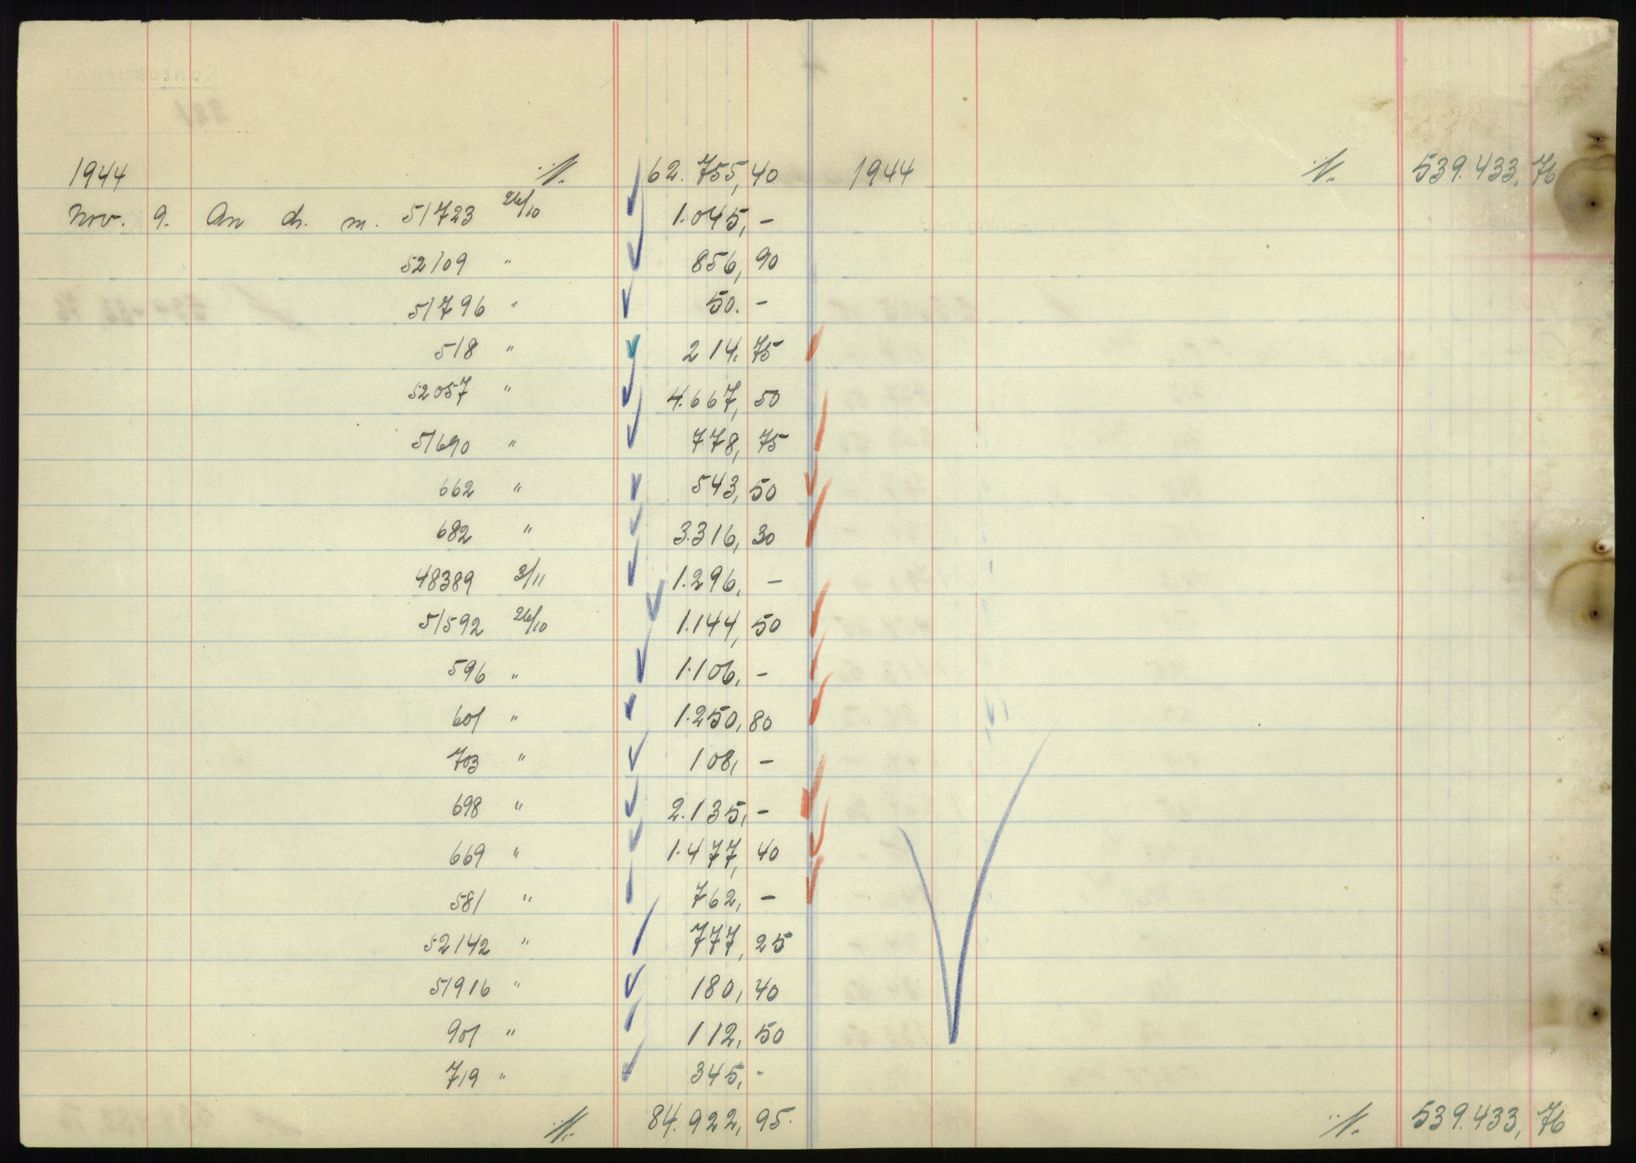 1944 ·/. 62.755,40
Nov. 9. An dr. m. 51723 26/10 1.045,-
52109 " 856,90
51796 " 50.-
518 " 214,75
52057 " 4.667,50
51690 " 778,75
662 " 543,50
682 " 3.316,30
48389 3/11 1.296,-
51592 26/10 1.144,50
596 " 1.106,-
601 " 1.250,80
703 " 108,-
698 " 2.135,-
669 " 1.477,40
581 " 762,-
52142 " 777,25
51916 " 180,40
901 " 112,50
719 " 345,-
·/. 84.922,95.
1944 ·/. 539.433,76
·/. 539.433,76